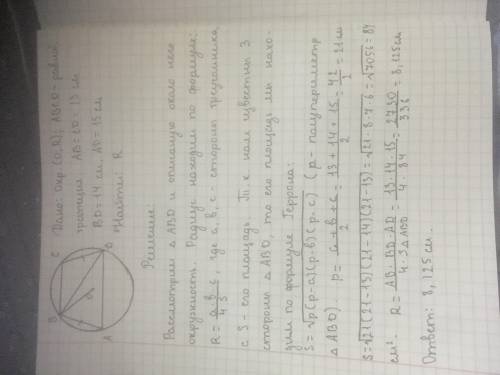 Дано: окр (O, R); ABCD - равноб.
трапеция AB = CD = 13 см
BD = 14 см, AD = 15 см
Найти: R
B C
A D
R
O
Решение:
Рассмотрим △ ABD и описаную около него
окружность. Радиус находим по формуле:
R = abc / 4S, где a, b, c - стороны треугольника
с S - его площадь. Т.к нам известны 3
стороны △ ABD, то его площадь мы нахо-
дим по формуле Геррона:
S = √p(p-a)(p-b)(p-c) (p - полупериметр
△ ABD). p = a + b + c / 2 = 13 + 14 + 15 / 2 = 42 / 2 = 21 см
S = √21(21-15)(21-14)(21-13) = √21·8·7·6 = √7056 = 84
см². R = AB · BD · AD / 4 · S△ABD = 13 · 14 · 15 / 4 · 84 = 2730 / 336 = 8,125 см
Ответ: 8,125 см.